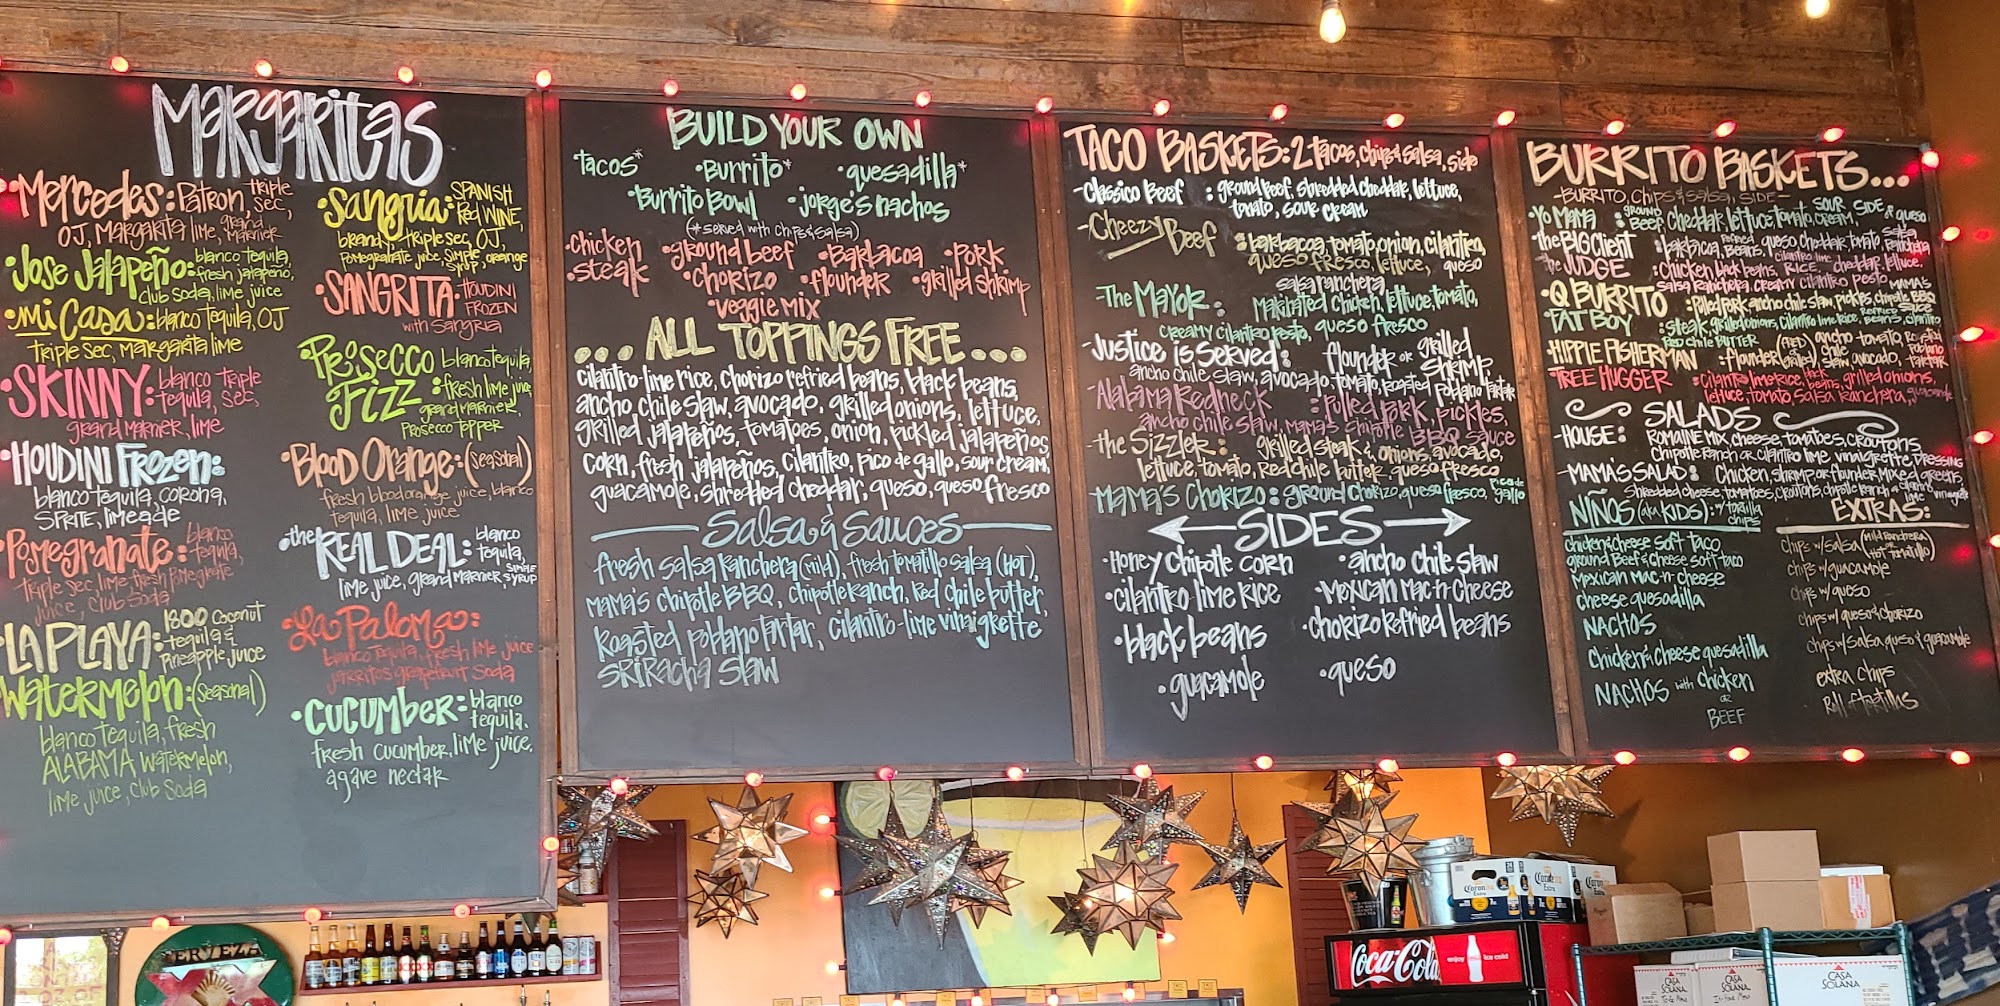 MARGARITAS
• MERCEDES: Patron, triple sec,
OJ, Margarita lime, grand marnier
Jose Jalapeño: blanco tequila,
fresh jalapeño,
club soda, lime juice
• Mi Casa: blanco tequila, OJ
triple sec, margarita lime
• SKINNY: blanco tequila, triple sec,
grand marnier, lime
HOUDINI FROZEN:
blanco tequila, corona,
SPRITE, limeade
Pomegranate: blanco tequila,
triple sec, lime, fresh pomegranate
juice, club soda
LA PLAYA: 1800 Coconut
tequila &
pineapple juice
WATERMELON: (seasonal)
blanco tequila, fresh
ALABAMA watermelon,
lime juice, club soda
• Sangria: SPANISH
Red WINE,
brandy, triple sec, OJ,
pomegranate juice, simple syrup, orange
• SANGRITA: HOUDINI
FROZEN
with SANGRIA
• Prosecco Fizz: blanco tequila,
fresh lime juice,
grand marnier,
Prosecco topper
• Blood Orange: (seasonal)
fresh blood orange juice, blanco
tequila, lime juice
• the REAL DEAL: blanco
tequila,
lime juice, grand marnier, SIMPLE SYRUP
• La Paloma:
blanco tequila, fresh lime juice
jarritos grapefruit soda
• CUCUMBER: blanco
tequila,
fresh cucumber, lime juice,
agave nectar
BUILD YOUR OWN
tacos* • Burrito* • quesadilla*
• Burrito Bowl • jorge's nachos
(* served with chips & salsa)
• chicken • ground beef • Barbacoa • Pork
• steak • chorizo • flounder • grilled shrimp
• veggie mix
... ALL TOPPINGS FREE ...
cilantro-lime rice, chorizo refried beans, black beans,
ancho chile slaw, avocado, grilled onions, lettuce,
grilled jalapeños, tomatoes, onion, pickled jalapeños,
corn, fresh jalapeños, cilantro, pico de gallo, sour cream,
guacamole, shredded cheddar, queso, queso fresco
Salsa & Sauces
fresh salsa ranchera (mild), fresh tomatillo salsa (HOT),
mama's chipotle BBQ, chipotle ranch, Red chile butter,
Roasted poblano tartar, cilantro-lime vinaigrette
SRIRACHA SLAW
TACO BASKETS: 2 tacos, chips & salsa, side
- Classico Beef : ground beef, shredded cheddar, lettuce,
tomato, sour cream
- Cheezy Beef : barbacoa, tomato, onion, cilantro,
queso fresco, lettuce, queso
salsa ranchera
- The Mayor : Marinated chicken, lettuce, tomato,
creamy cilantro pesto, queso fresco
- Justice is Served : flounder or grilled shrimp,
ancho chile slaw, avocado, tomato, roasted poblano tartar
- Alabama Redneck : Pulled Pork, pickles,
ancho chile slaw, mama's chipotle BBQ sauce
- the Sizzler : grilled steak & onions, avocado,
lettuce, tomato, Red chile butter, queso fresco
- Mama's Chorizo : ground chorizo, queso fresco, pico de gallo
SIDES
• Honey Chipotle corn • ancho chile slaw
• cilantro-lime rice • Mexican Mac-n-Cheese
• black beans • chorizo refried beans
• guacamole • queso
BURRITO BASKETS...
- BURRITO, Chips & salsa, SIDE -
- Yo Mama : GROUND BEEF, cheddar, lettuce, tomato, SOUR CREAM, SIDE of queso
- the BIG Client : barbacoa, refried beans, queso, cheddar, tomato, salsa ranchera
- the JUDGE : chicken, black beans, cilantro lime RICE, cheddar, lettuce,
salsa ranchera, creamy cilantro pesto
- Q BURRITO : Pulled pork, ancho chile slaw, pickles, MAMA'S chipotle BBQ
- FAT BOY : steak, grilled onions, cilantro lime rice, refried beans, cilantro,
Red chile butter
- HIPPIE FISHERMAN : flounder (fried) grilled, ancho chile slaw, tomato, avocado, roasted poblano tartar
- TREE HUGGER : cilantro lime rice, black beans, grilled onions,
lettuce, tomato, salsa ranchera, guacamole
SALADS
- HOUSE: ROMAINE MIX, cheese, tomatoes, croutons
chipotle ranch or cilantro lime vinaigrette DRESSING
- MAMA'S SALAD: Chicken, shrimp or flounder, mixed greens,
shredded cheese, tomatoes, croutons, chipotle ranch & cilantro lime vinaigrette
NIÑOS (aka KIDS): w/ tortilla chips
chicken & cheese soft taco
ground Beef & cheese soft taco
Mexican Mac-n-cheese
cheese quesadilla
NACHOS
chicken & cheese quesadilla
NACHOS with chicken
or
BEEF
EXTRAS:
chips w/ salsa (Mild Ranchera / HOT Tomatillo)
chips w/ guacamole
chips w/ queso
chips w/ queso & chorizo
chips w/ salsa, queso & guacamole
extra chips
Roll of tortillas
CERVEZA
XX
Corona
Extra
Coca-Cola
enjoy ice cold
CASA SOLANA
CASA SOLANA
CASA SOLANA